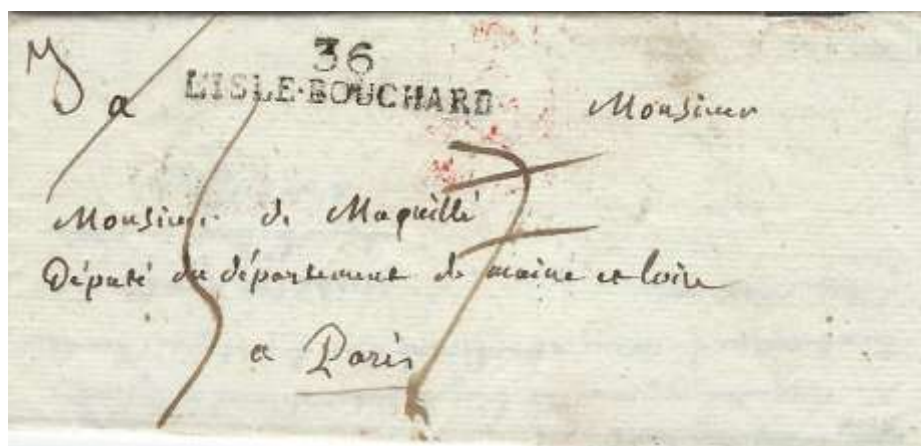 36
L'ISLE-BOUCHARD
a Monsieur
Monsieur de Maquillé
Député du département de maine et loire
a Paris